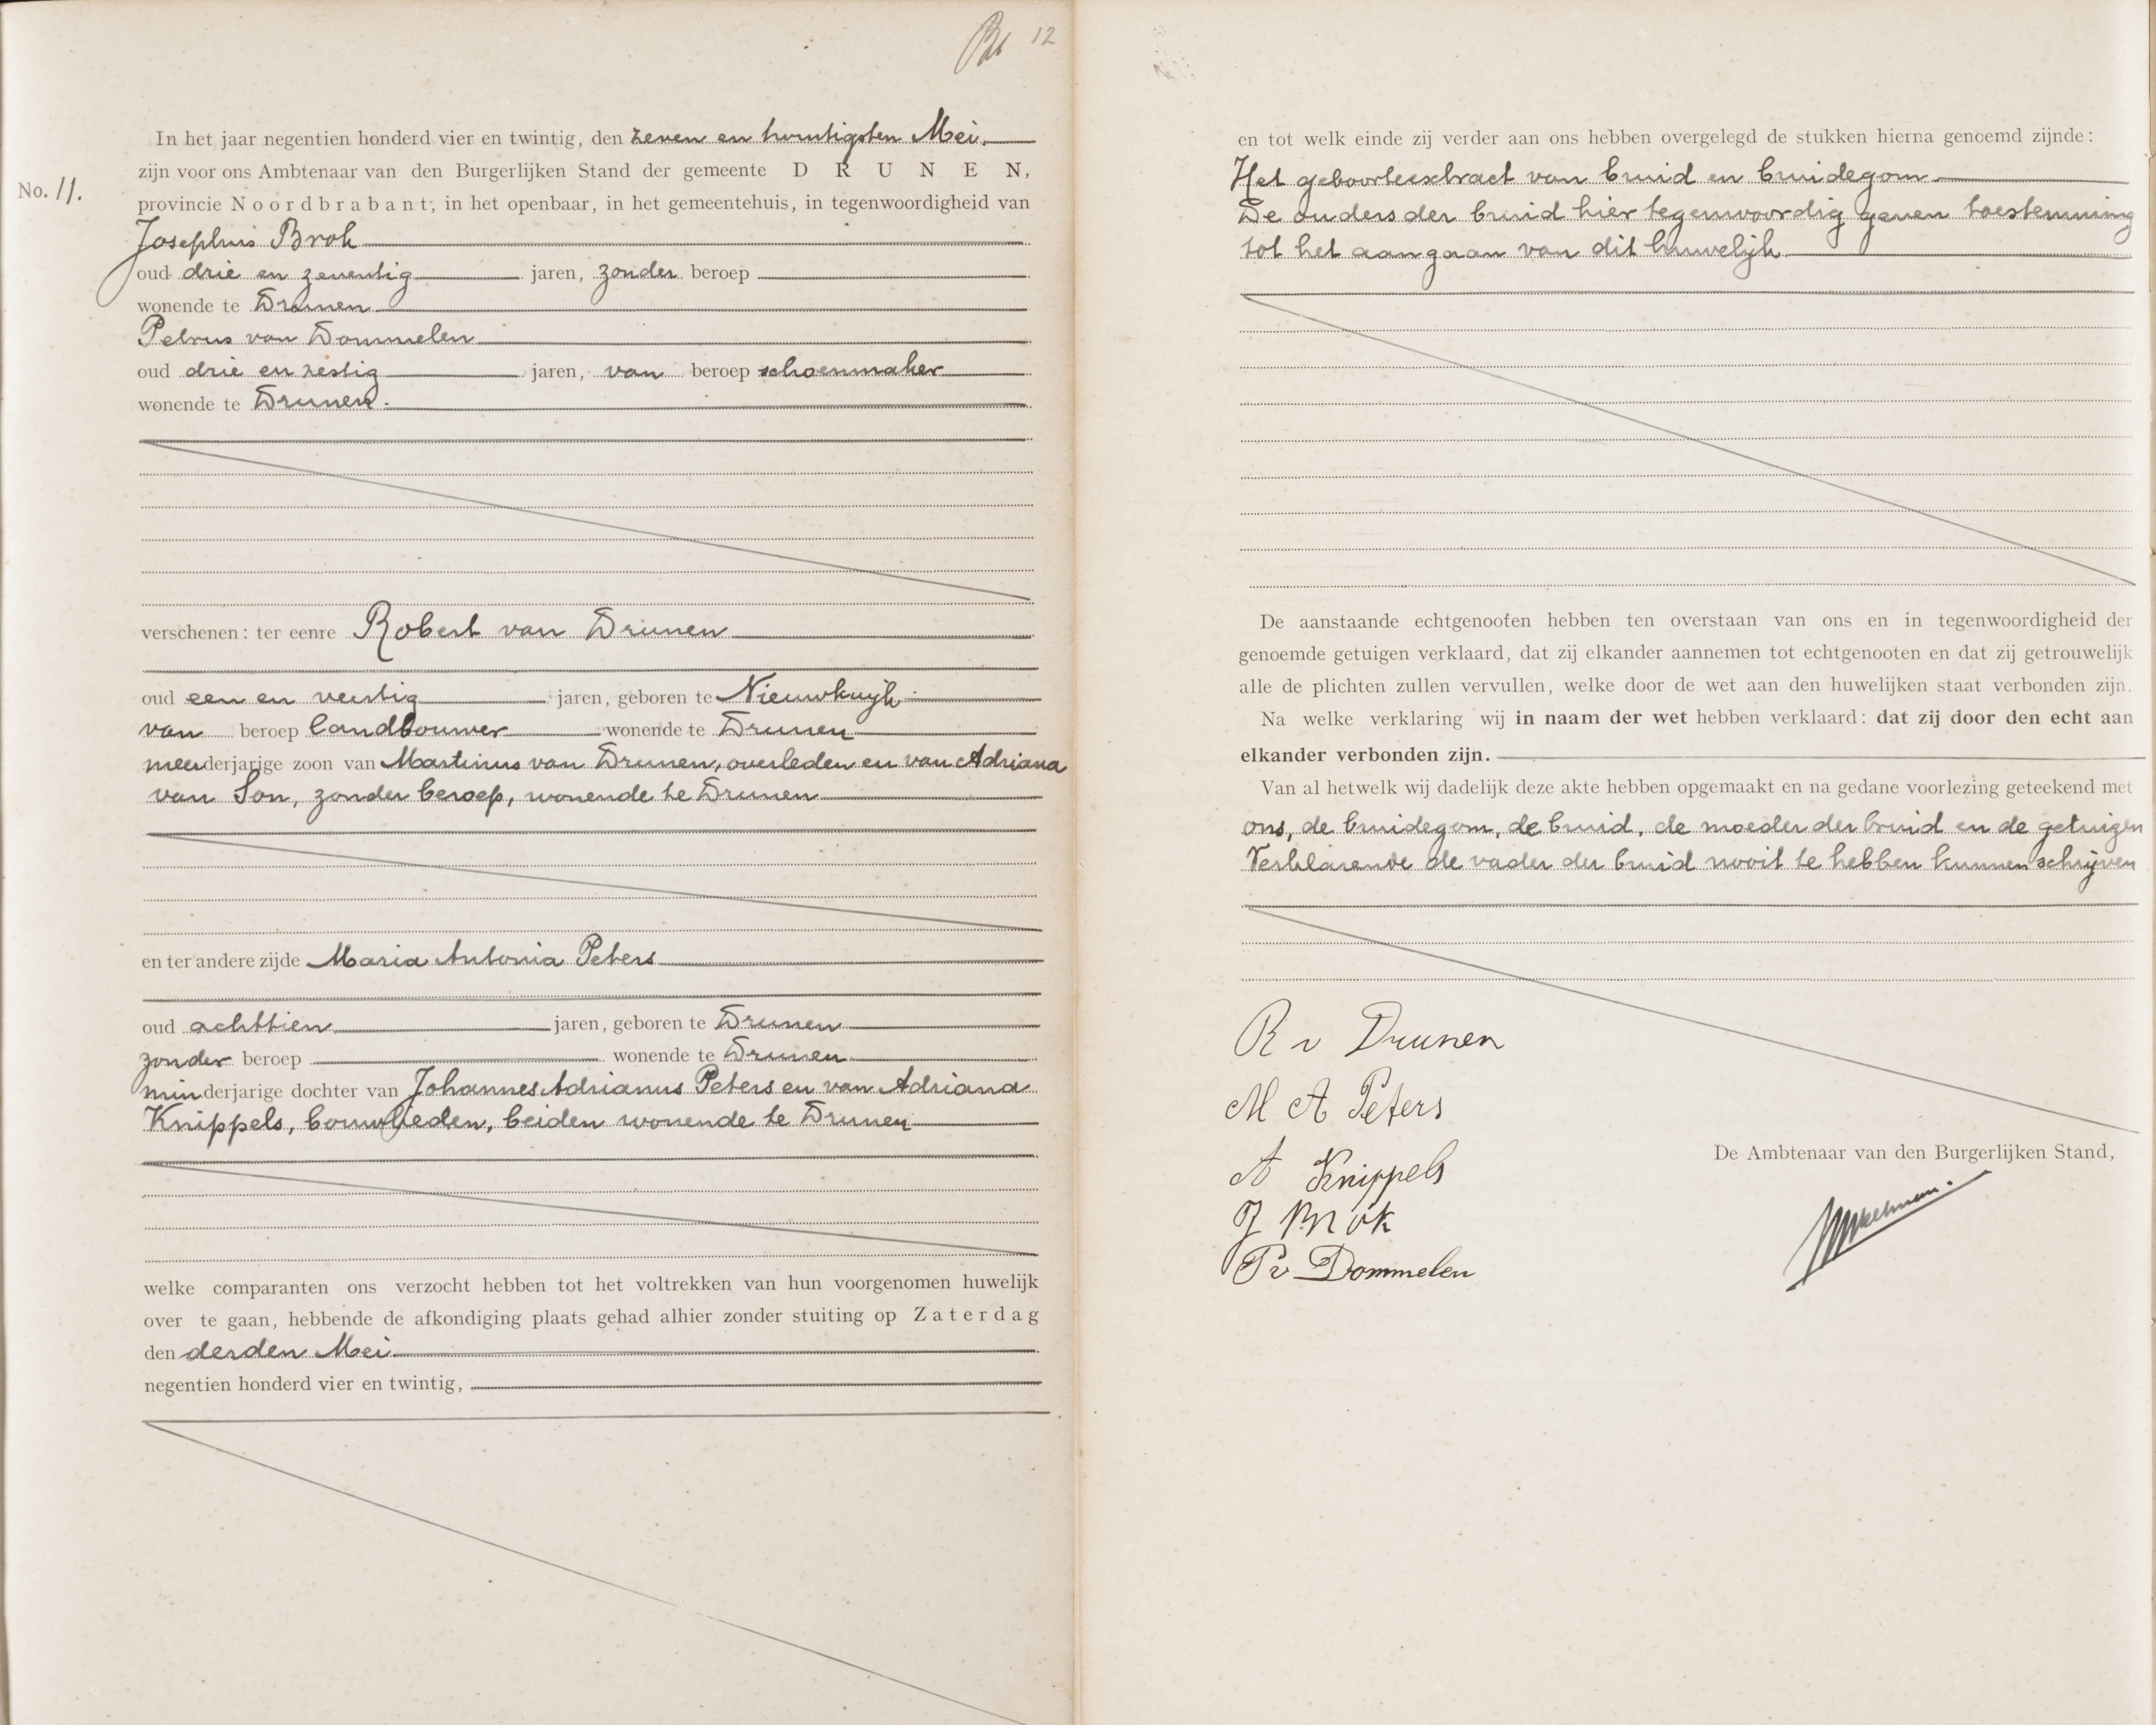 12
In het jaar negentien honderd vier en twintig, den zeven en twintigsten Mei.
zijn voor ons Ambtenaar van den Burgerlijken Stand der gemeente DRUNEN,
No. 11.
provincie Noordbrabant, in het openbaar, in het gemeentehuis, in tegenwoordigheid van
Josephus Brok
oud drie en zeventig jaren, zonder beroep
wonende te Drunen
Petrus van Dommelen
oud drie en zestig jaren, van beroep schoenmaker
wonende te Drunen.
verschenen: ter eenre Robert van Drunen
oud een en veertig jaren, geboren te Nieuwkuijk
van beroep landbouwer wonende te Drunen
meerderjarige zoon van Martinus van Drunen, overleden en van Adriana
van Son, zonder beroep, wonende te Drunen
en ter andere zijde Maria Antonia Peters
oud achttien jaren, geboren te Drunen
zonder beroep wonende te Drunen
minderjarige dochter van Johannes Adrianus Peters en van Adriana
Knippels, bouwlieden, beiden wonende te Drunen
welke comparanten ons verzocht hebben tot het voltrekken van hun voorgenomen huwelijk
over te gaan, hebbende de afkondiging plaats gehad alhier zonder stuiting op Zaterdag
den derden Mei
negentien honderd vier en twintig,
en tot welk einde zij verder aan ons hebben overgelegd de stukken hierna genoemd zijnde:
Het geboorteextract van bruid en bruidegom
De ouders der bruid hier tegenwoordig gaven toestemming
tot het aangaan van dit huwelijk
De aanstaande echtgenooten hebben ten overstaan van ons en in tegenwoordigheid der
genoemde getuigen verklaard, dat zij elkander aannemen tot echtgenooten en dat zij getrouwelijk
alle de plichten zullen vervullen, welke door de wet aan den huwelijken staat verbonden zijn.
Na welke verklaring wij in naam der wet hebben verklaard: dat zij door den echt aan
elkander verbonden zijn.
Van al hetwelk wij dadelijk deze akte hebben opgemaakt en na gedane voorlezing geteekend met
ons, de bruidegom, de bruid, de moeder der bruid en de getuigen
Verklarende de vader der bruid nooit te hebben kunnen schrijven
R v Drunen
M A Peters
A Knippels
J Brok
P v Dommelen
De Ambtenaar van den Burgerlijken Stand,